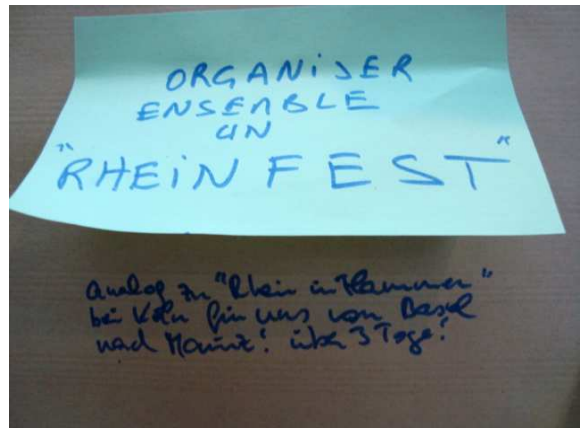 ORGANISER
ENSEMBLE
UN
"RHEiNFEST"
analog zu "Rhein in Flammen"
bei Köln für uns von Basel
nach Mainz! über 3 Tage!